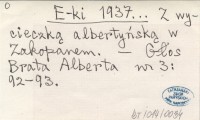 0
E-ki 1937... Z wy-
cieczką albertyńską w
Zakopanem. — Głos
Brata Alberta nr 3:
92-93.